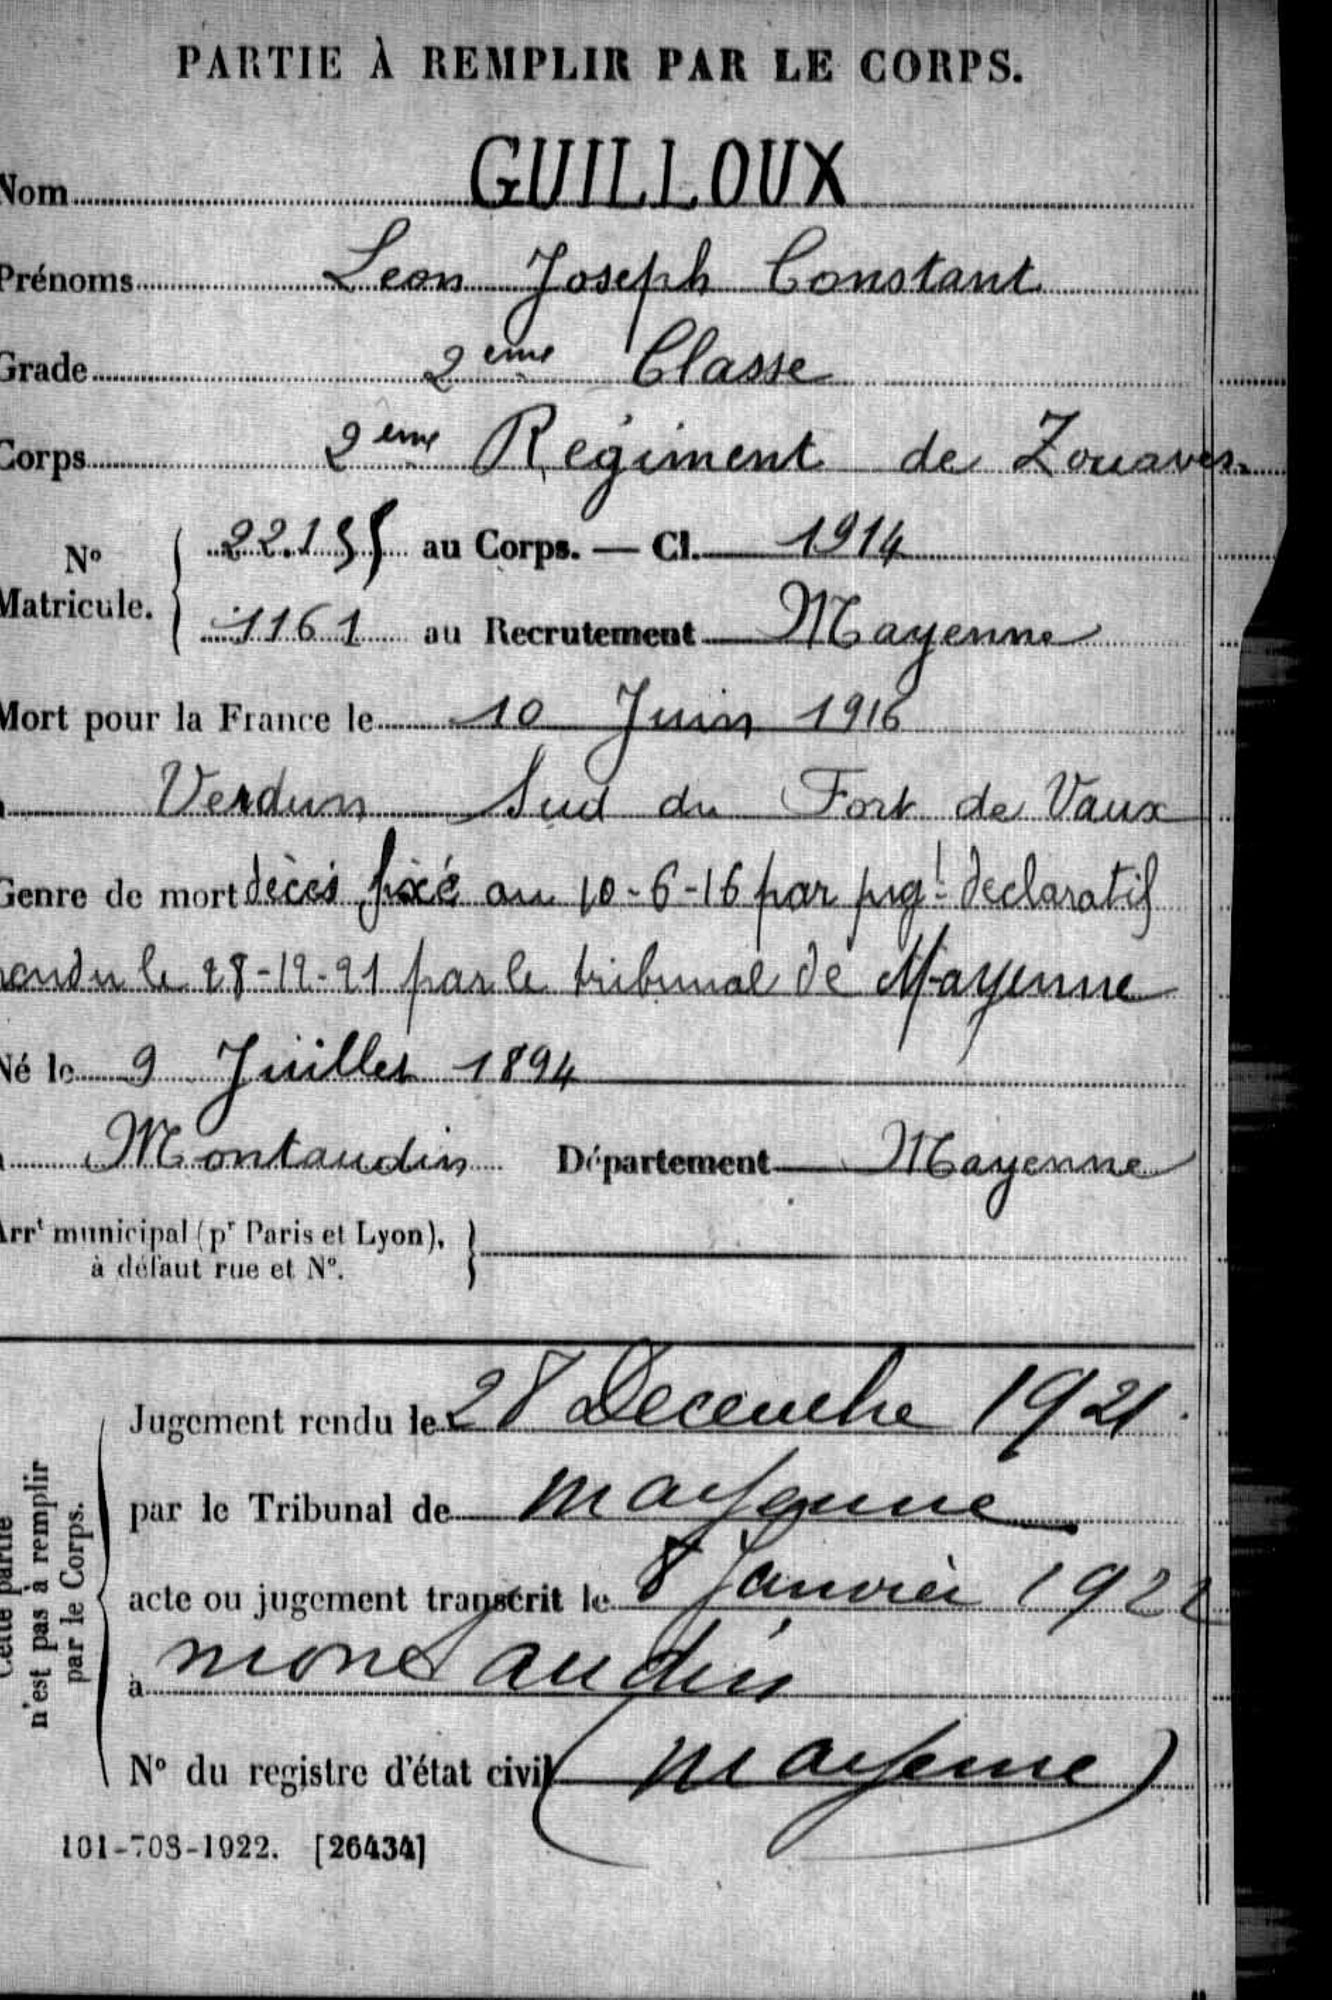 PARTIE À REMPLIR PAR LE CORPS.
Nom GUILLOUX
Prénoms Leon Joseph Constant
Grade 2eme Classe
Corps 2eme Regiment de Zouaves
N° Matricule. 22.155 au Corps. — Cl. 1914
1161 au Recrutement Mayenne
Mort pour la France le 10 Juin 1916
Verdun Sud du Fort de Vaux
Genre de mort décés fixé au 10-6-16 par jugt déclaratif
rendu le 28-12-21 par le tribunal de Mayenne
Né le 9 Juillet 1894
Montaudin Département Mayenne
Arrt municipal (pr Paris et Lyon),
à défaut rue et N°.
Cette partie
n'est pas à remplir
par le Corps.
Jugement rendu le 28 Decembre 1921
par le Tribunal de Mayenne
acte ou jugement transcrit le 8 Janvier 1922
à Montaudin
N° du registre d'état civil (Mayenne)
101-708-1922. [26434]